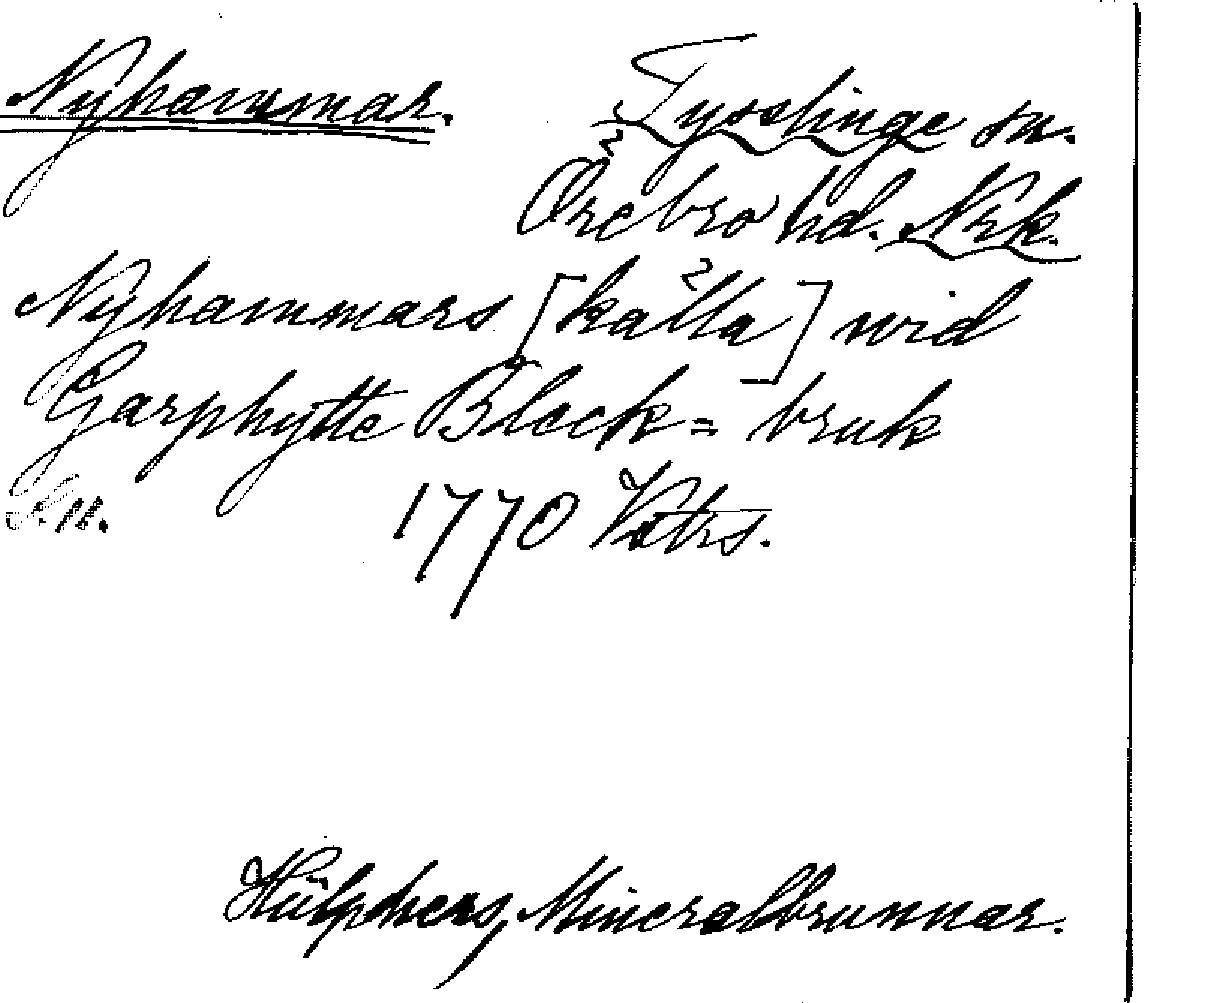 Nyhammar.
Tysslinge sn.
Örebro hd. Nrk.
Nyhammars [källa] wid
Garphytte Bleck = bruk
1770 Vatrs.
Hülphers, Mineralbrunnar.